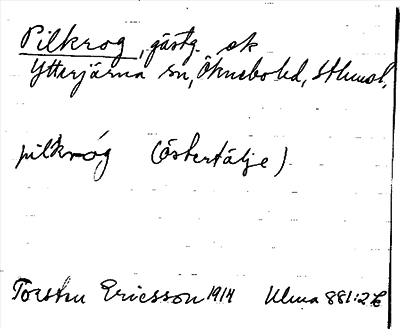 Pilkrog, gästg. ok
Ytterjärna sn, Öknebo hd, Sthms l.
pilkróg (östertälje)
Torsten Ericsson 1914 Ulma 881:2